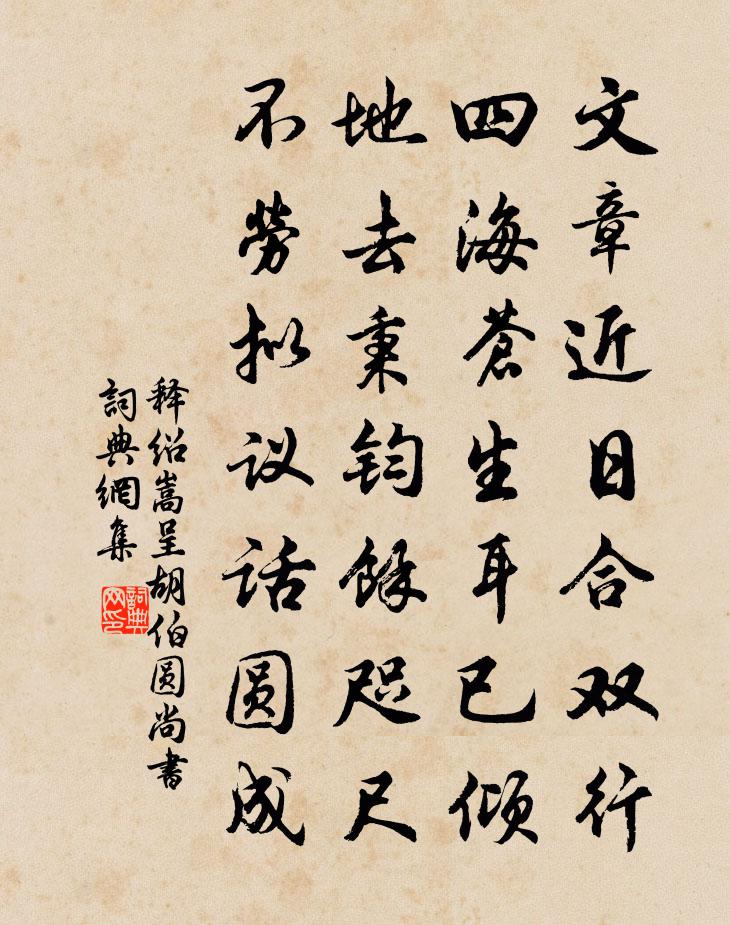 文章近日合双行
四海蒼生耳已倾
地去秉钧馀咫尺
不勞拟议话圆成
释绍嵩呈胡伯圆尚書
詞典網集
詞典网印